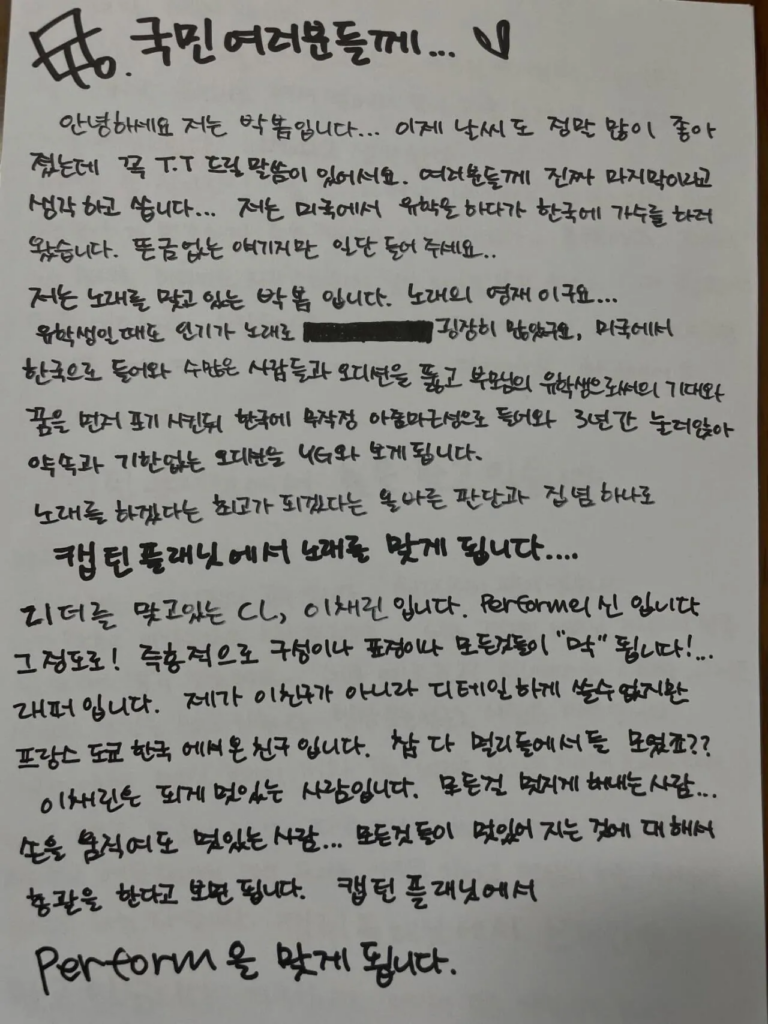 국민여러분들께...
안녕하세요 저는 박봄입니다... 이제 날씨도 정말 많이 좋아
졌는데 꼭 T.T 드릴말씀이 있어서요. 여러분들께 진짜 마지막이라고
생각하고 씁니다... 저는 미국에서 유학을 하다가 한국에 가수를 하러
왔습니다. 뜬금없는 얘기지만 일단 들어 주세요..
저는 노래를 맞고 있는 박봄 입니다. 노래의 영재이구요...
유학생일때도 인기가 노래로 굉장히 많았구요, 미국에서
한국으로 들어와 수많은 사람들과 오디션을 뚫고 부모님의 유학생으로써의 기대와
꿈을 먼저 포기 시킨뒤 한국에 무작정 아줌마근성으로 들어와 3년간 눌러앉아
약속과 기한없는 오디션을 YG와 보게됩니다.
노래를 하겠다는 최고가 되겠다는 올바른 판단과 집념 하나로
캡틴플래닛에서 노래를 맞게 됩니다....
리더를 맞고있는 CL, 이채린 입니다. Perform의 신 입니다
그정도로! 즉흥적으로 구성이나 표정이나 모든것들이 "막" 됩니다!...
래퍼입니다. 제가 이친구가 아니라 디테일하게 쓸수없지만
프랑스 도쿄 한국 에서온 친구입니다. 참 다 멀리들에서들 모였죠??
이채린은 되게 멋있는 사람입니다. 모든걸 멋지게 해내는사람...
손을 움직여도 멋있는 사람... 모든것들이 멋있어 지는 것에 대해서
총괄을 한다고 보면 됩니다. 캡틴 플래닛에서
Perform을 맞게 됩니다.